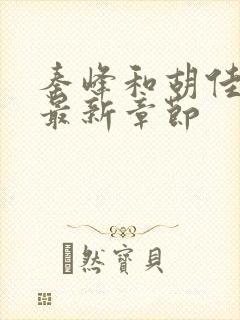 秦峰和胡佳
最新章节
然寶貝